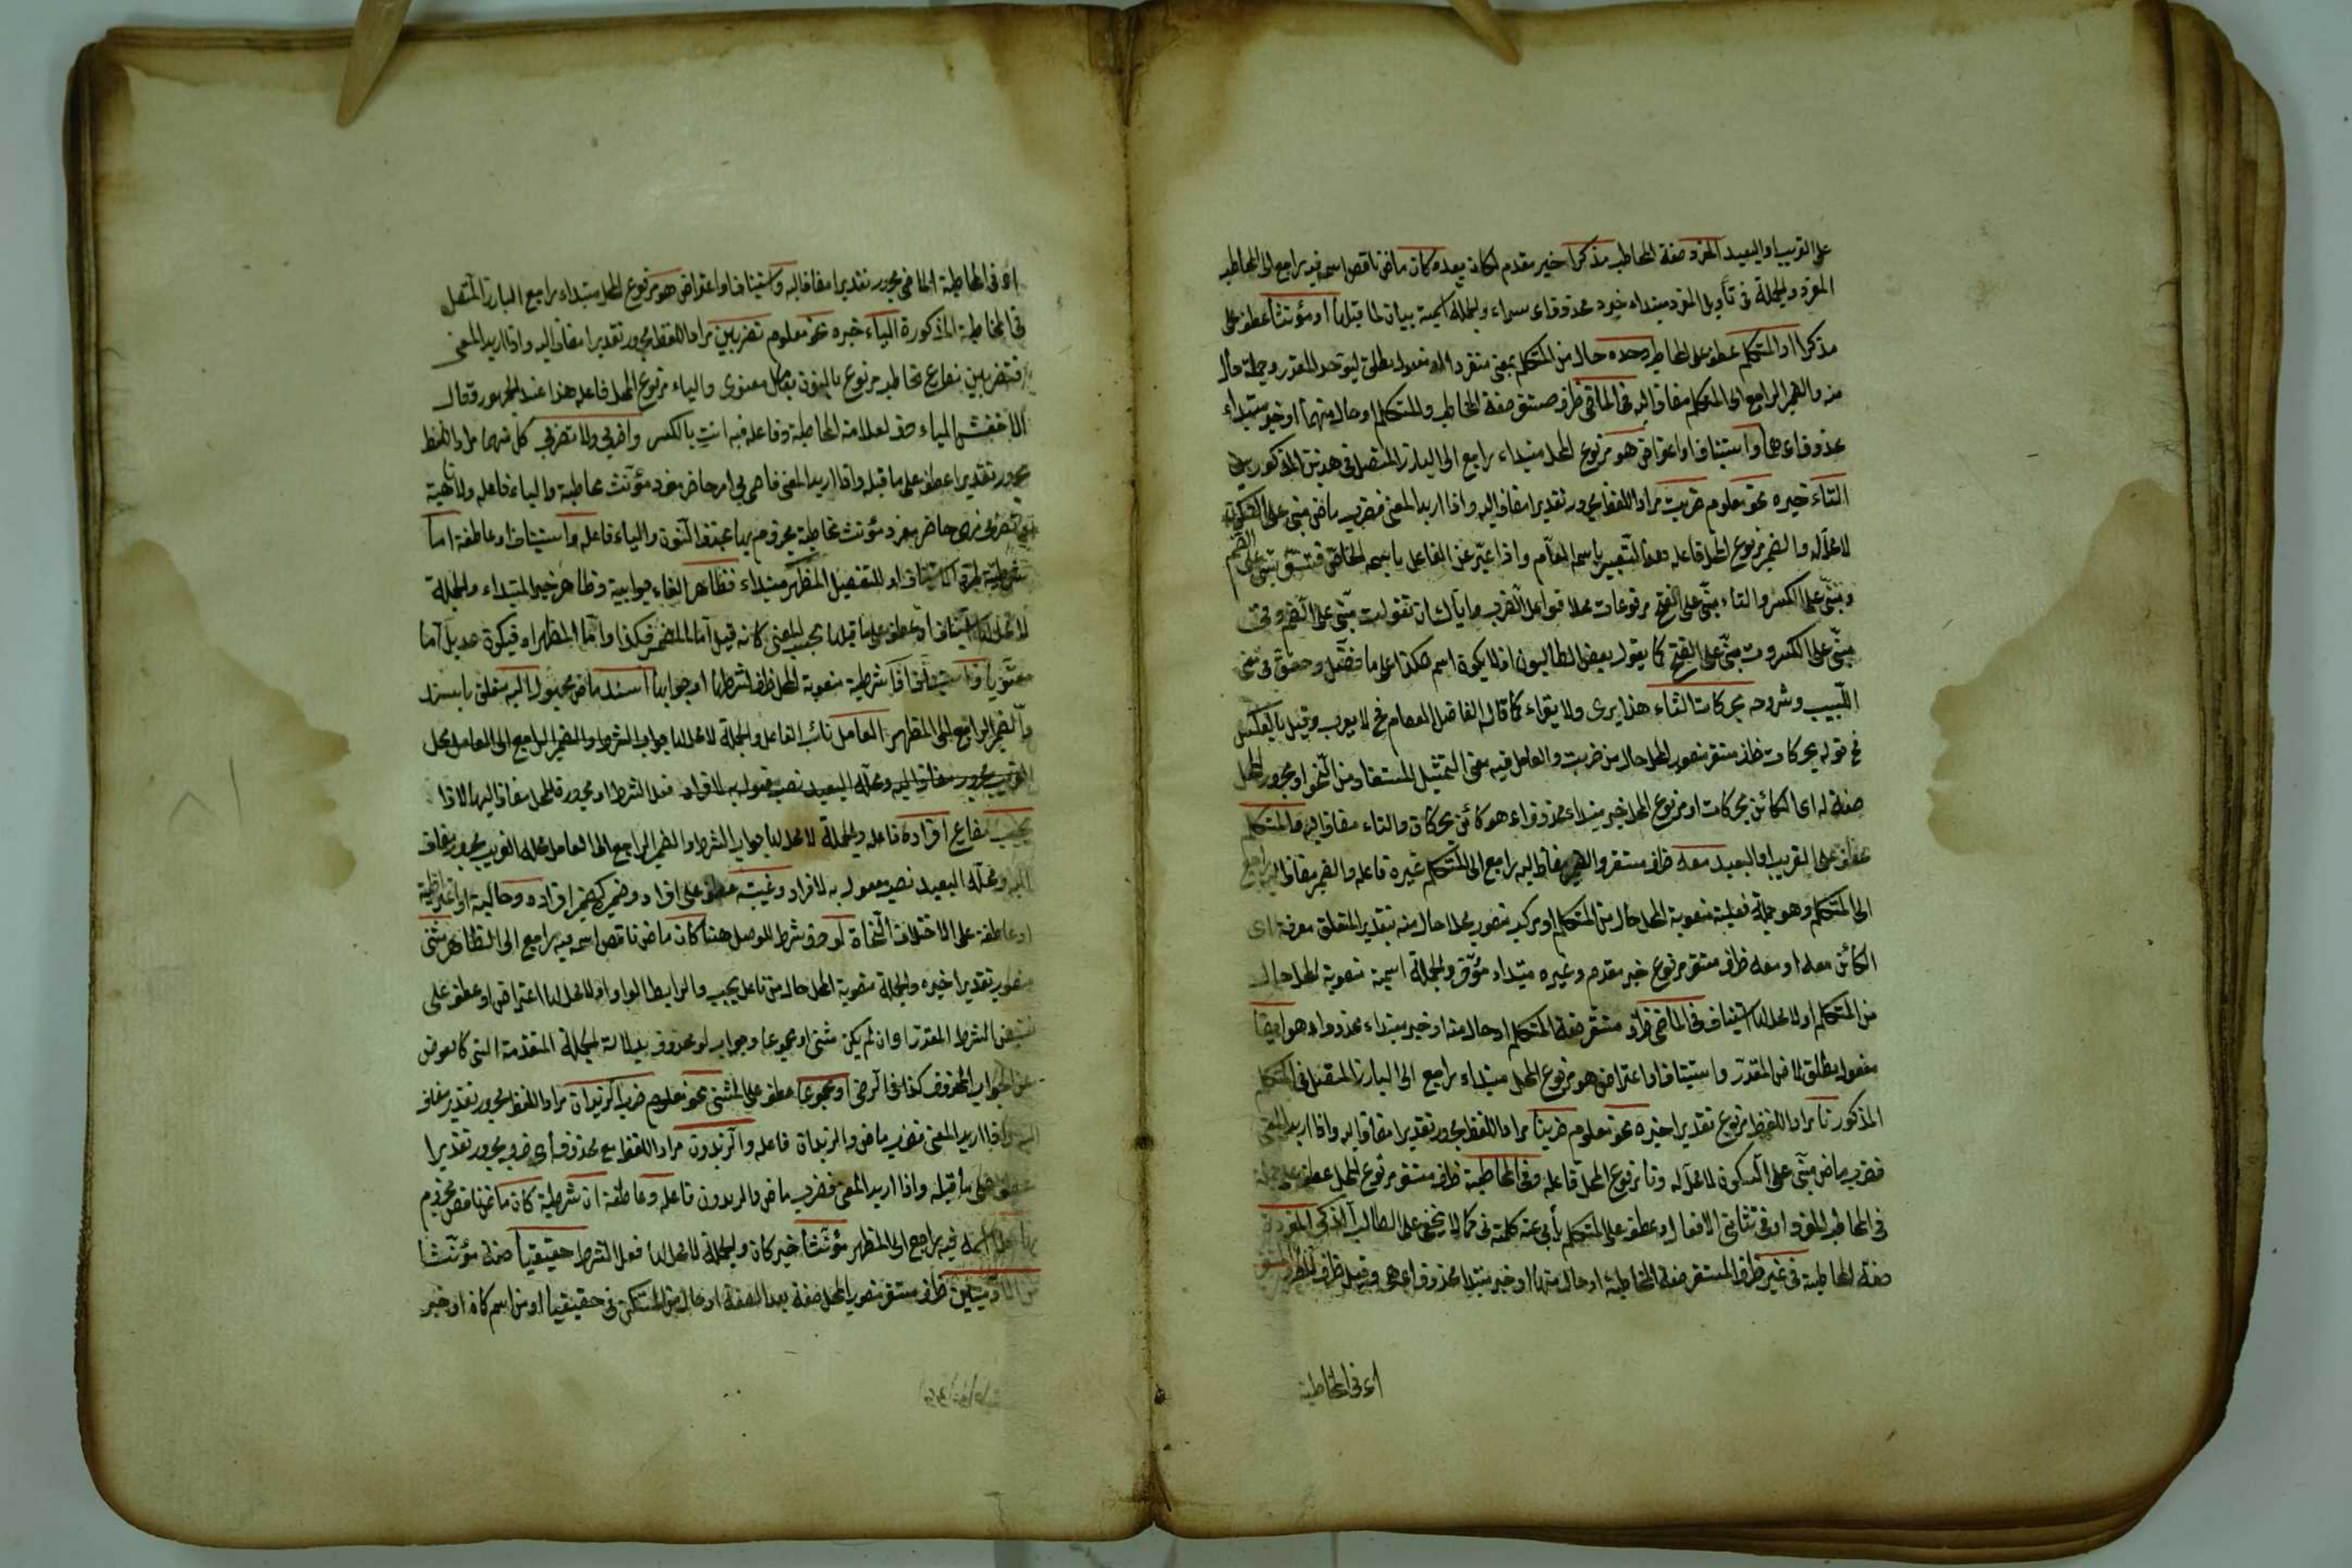 على القريب او البعيد المفرد صفة المخاطب مذكرا خبر مقدم لكان بعده وكان ماض ناقص اسمه فيه راجع الى المخاطب
المفرد والجملة في تأويل المفرد مبتداء خبره محذوف اى سواء والجملة اسمية بيان لما قبلها او مؤنثا عطف على
مذكرا او المتكلم عطف على المخاطب وحده حال من المتكلم بمعنى منفردا او مفعول مطلق ليتوحد المقدر وجملته حال
منه والضمير الراجع الى المتكلم مضاف اليه في الماضى ظرف مستقر صفة المخاطب والمتكلم او حال منهما او خبر مبتداء
محذوف اى هما واستيناف او اعتراض هو مرفوع المحل مبتداء راجع الى البارز المتصل في هذين المذكورين
التاء خبره نحو معلوم ضربت مراد اللفظ مجرور تقديرا مضاف اليه واذا اريد المعنى فضرب ماض مبنى على السكون
لا محل له والضمير مرفوع المحل فاعله وهذا التعبير باسمه العام واذا عبّر عن الفاعل باسمه الخاص فتقول مبنى على الضم
ومبنى على الكسر والتاء مبنى على الفتح مرفوعات محلا فواعل الضرب واياك ان تقول ت مبنى على الضم وت
مبنى على الكسر وت مبنى على الفتح كما يقول بعض الطالبون اذ لا يكون اسم هكذا على ما فصّل وحقق في مغنى
اللبيب وشروحه بحركات التاء هذا يرى ولا يقراء كما قال الفاضل العصام فح لا يعرب وقيل بالعكس
فح قوله بحركات ظرف مستقر منصوب المحل حال من ضربت والعامل فيه معنى التمثيل المستفاد من النحو او مجرور المحل
صفة له اى الكائن بحركات او مرفوع المحل خبر مبتداء محذوف اى هو كائن بحركات والتاء مضاف اليه والمتكلم
عطف على القريب او البعيد معه ظرف مستقر والضمير مضاف اليه راجع الى المتكلم غيره فاعله والضمير مضاف اليه راجع
الى المتكلم وهو جملة فعلية منصوبة المحل حال من المتكلم او مركب منصوب محلا حال منه بتقدير المتعلق معرفة اى
الكائن معه او معه ظرف مستقر مرفوع خبر مقدم وغيره مبتداء مؤخر والجملة اسمية منصوبة المحل حال
من المتكلم او لا محل لها استيناف في الماضى ظرف مستقر صفة المتكلم او حال منه او خبر مبتداء محذوف اى هو ايضا
مفعول مطلق لاض المقدر واستيناف او اعتراض هو مرفوع المحل مبتداء راجع الى البارز المتصل في المتكلم
المذكور نا مراد اللفظ مرفوع تقديرا خبره نحو معلوم ضربنا مراد اللفظ مجرور تقديرا مضاف اليه واذا اريد المعنى
فضرب ماض مبنى على السكون لا محل له ونا مرفوع المحل فاعله وفى المخاطبة ظرف مستقر مرفوع المحل عطف على جملة
في المخاطب المفرد او في تثانى الافعال او عطفه على المتكلم يأبى عنه كلمة في كما لا يخفى على الطالب الذكى المفردة
صفة المخاطبة في غير ظرف المستقر صفة المخاطبة او حال منها او خبر مبتداء محذوف اى هى وقيل ظرف
او في المخاطبة
او في المخاطبة الماضى مجرور تقديرا مضاف اليه واستيناف او اعتراض هو مرفوع المحل مبتداء راجع البارز المتصل
في المخاطبة المذكورة الياء خبره نحو معلوم تضربين مراد اللفظ مجرور تقديرا مضاف اليه واذا اريد المعنى
فتضربين مضارع مخاطب مرفوع بالنون بعامل معنوى والياء مرفوع المحل فاعله هذا عند الجمهور وقال
الاخفش الياء حرف لعلامة المخاطبة وفاعله فيه انت بالكسر واضربى ولا تضربى كل منهما مراد اللفظ
مجرور تقديرا عطف على ما قبله واذا اريد المعنى فاضربى امر حاضر مفرد مؤنث مخاطبة والياء فاعله ولا ناهية
تضربى نهى حاضر مفرد مؤنث مخاطبة مجزوم بها بحذف النون والياء فاعله واستيناف او عاطفة اما
شرطية لمجرد الاستيناف او للتفصيل المظهر مبتداء فظاهر الفاء جوابية وظاهر خبر المبتداء والجملة
لا محل لها استيناف او عطف على ما قبلها بحسب المعنى كانه قيل اما المضمر فكذا واما المظهر اه فيكون عديل اما
معنويا واستيناف اذا شرطية منصوبة المحل ظرف لشرطها او جوابها اسند ماض مجهول اليه متعلق باسند
والضمير الراجع الى المظهر العامل نائب الفاعل والجملة لا محل لها جواب الشرط والضمير الراجع الى العامل محل
القريب مجرور مضاف اليه ومحله البعيد نصب مفعول به لافراد فعل الشرط او مجرورة المحل مضاف اليها لاذا
يجب مضارع افراده فاعله والجملة لا محل لها جواب الشرط والضمير الراجع الى العامل محله القريب مجرور مضاف
اليه ومحله البعيد نصب مفعول به لافراد وغيبته عطف على افراد وضميره كضمير افراده وحالية او اعتراضية
او عاطفة على الاختلاف النحاة لو حرف شرط للوصل هنا كان ماض ناقص اسمه فيه راجع الى الظاهر مثنى
منصوب تقديرا خبره والجملة منصوبة المحل حال من فاعل يجب والرابط الواو او لا محل لها اعتراض او عطف على
نقيض الشرط المقدر اى ان لم يكن مثنى او مجموعا وجواب لو محذوف بدلالة الجملة المتقدمة التى كالعوض
عن الجواب المحذوف كذا في الرضى او مجموعا عطف على المثنى نحو معلوم ضرب الزيدان مراد اللفظ مجرور تقديرا مضاف
اليه واذا اريد المعنى فضرب ماض والزيدان فاعله والزيدون مراد اللفظ مع محذوف اى ضرب مجرور تقديرا
عطف على ما قبله واذا اريد المعنى فضرب ماض والزيدون فاعله وعاطفة ان شرطية كان ماض ناقص مجزوم
بها محلا اسمه فيه راجع الى المظهر مؤنثا خبر كان والجملة لا محل لها فعل الشرط حقيقيا صفة مؤنثا
من الآدميين ظرف مستقر منصوب المحل صفة بعد الصفة او حال من المستكن في حقيقيا او من اسم كان او خبر